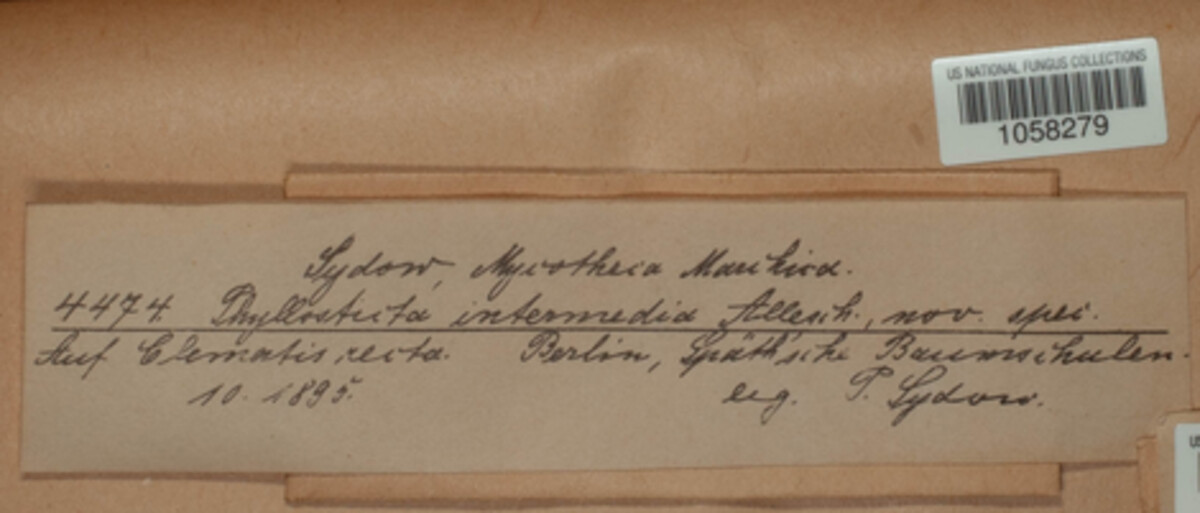 US NATIONAL FUNGUS COLLECTIONS
1058279
Sydow, Mycotheca Marchica.
4474. Phyllosticta intermedia Allesch., nov. spec.
Auf Clematis recta. Berlin, Späth'sche Baumschulen.
10. 1895. leg. P. Sydow.
US